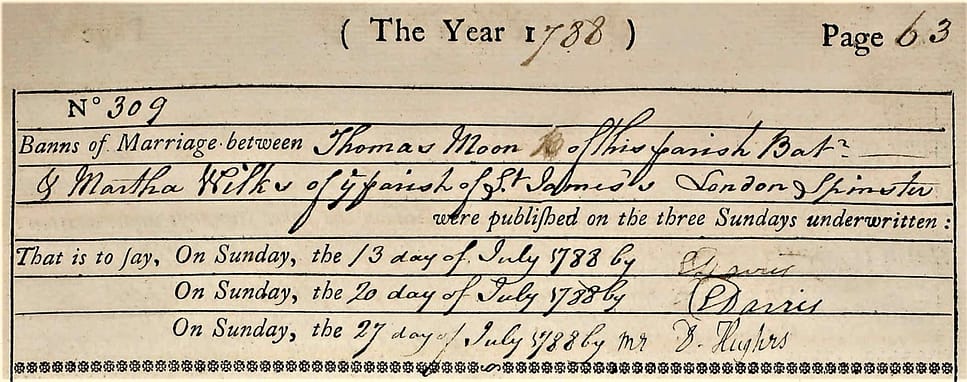 ( The Year 1788 )
Page 63
N° 309
Banns of Marriage between Thomas Moon of this parish Batr
& Martha Wilks of ye parish of St James's London Spinster
were publiſhed on the three Sundays underwritten :
That is to ſay, On Sunday, the 13 day of July 1788 by Davis
On Sunday, the 20 day of July 1788 by Davis
On Sunday, the 27 day of July 1788 by mr Hughes